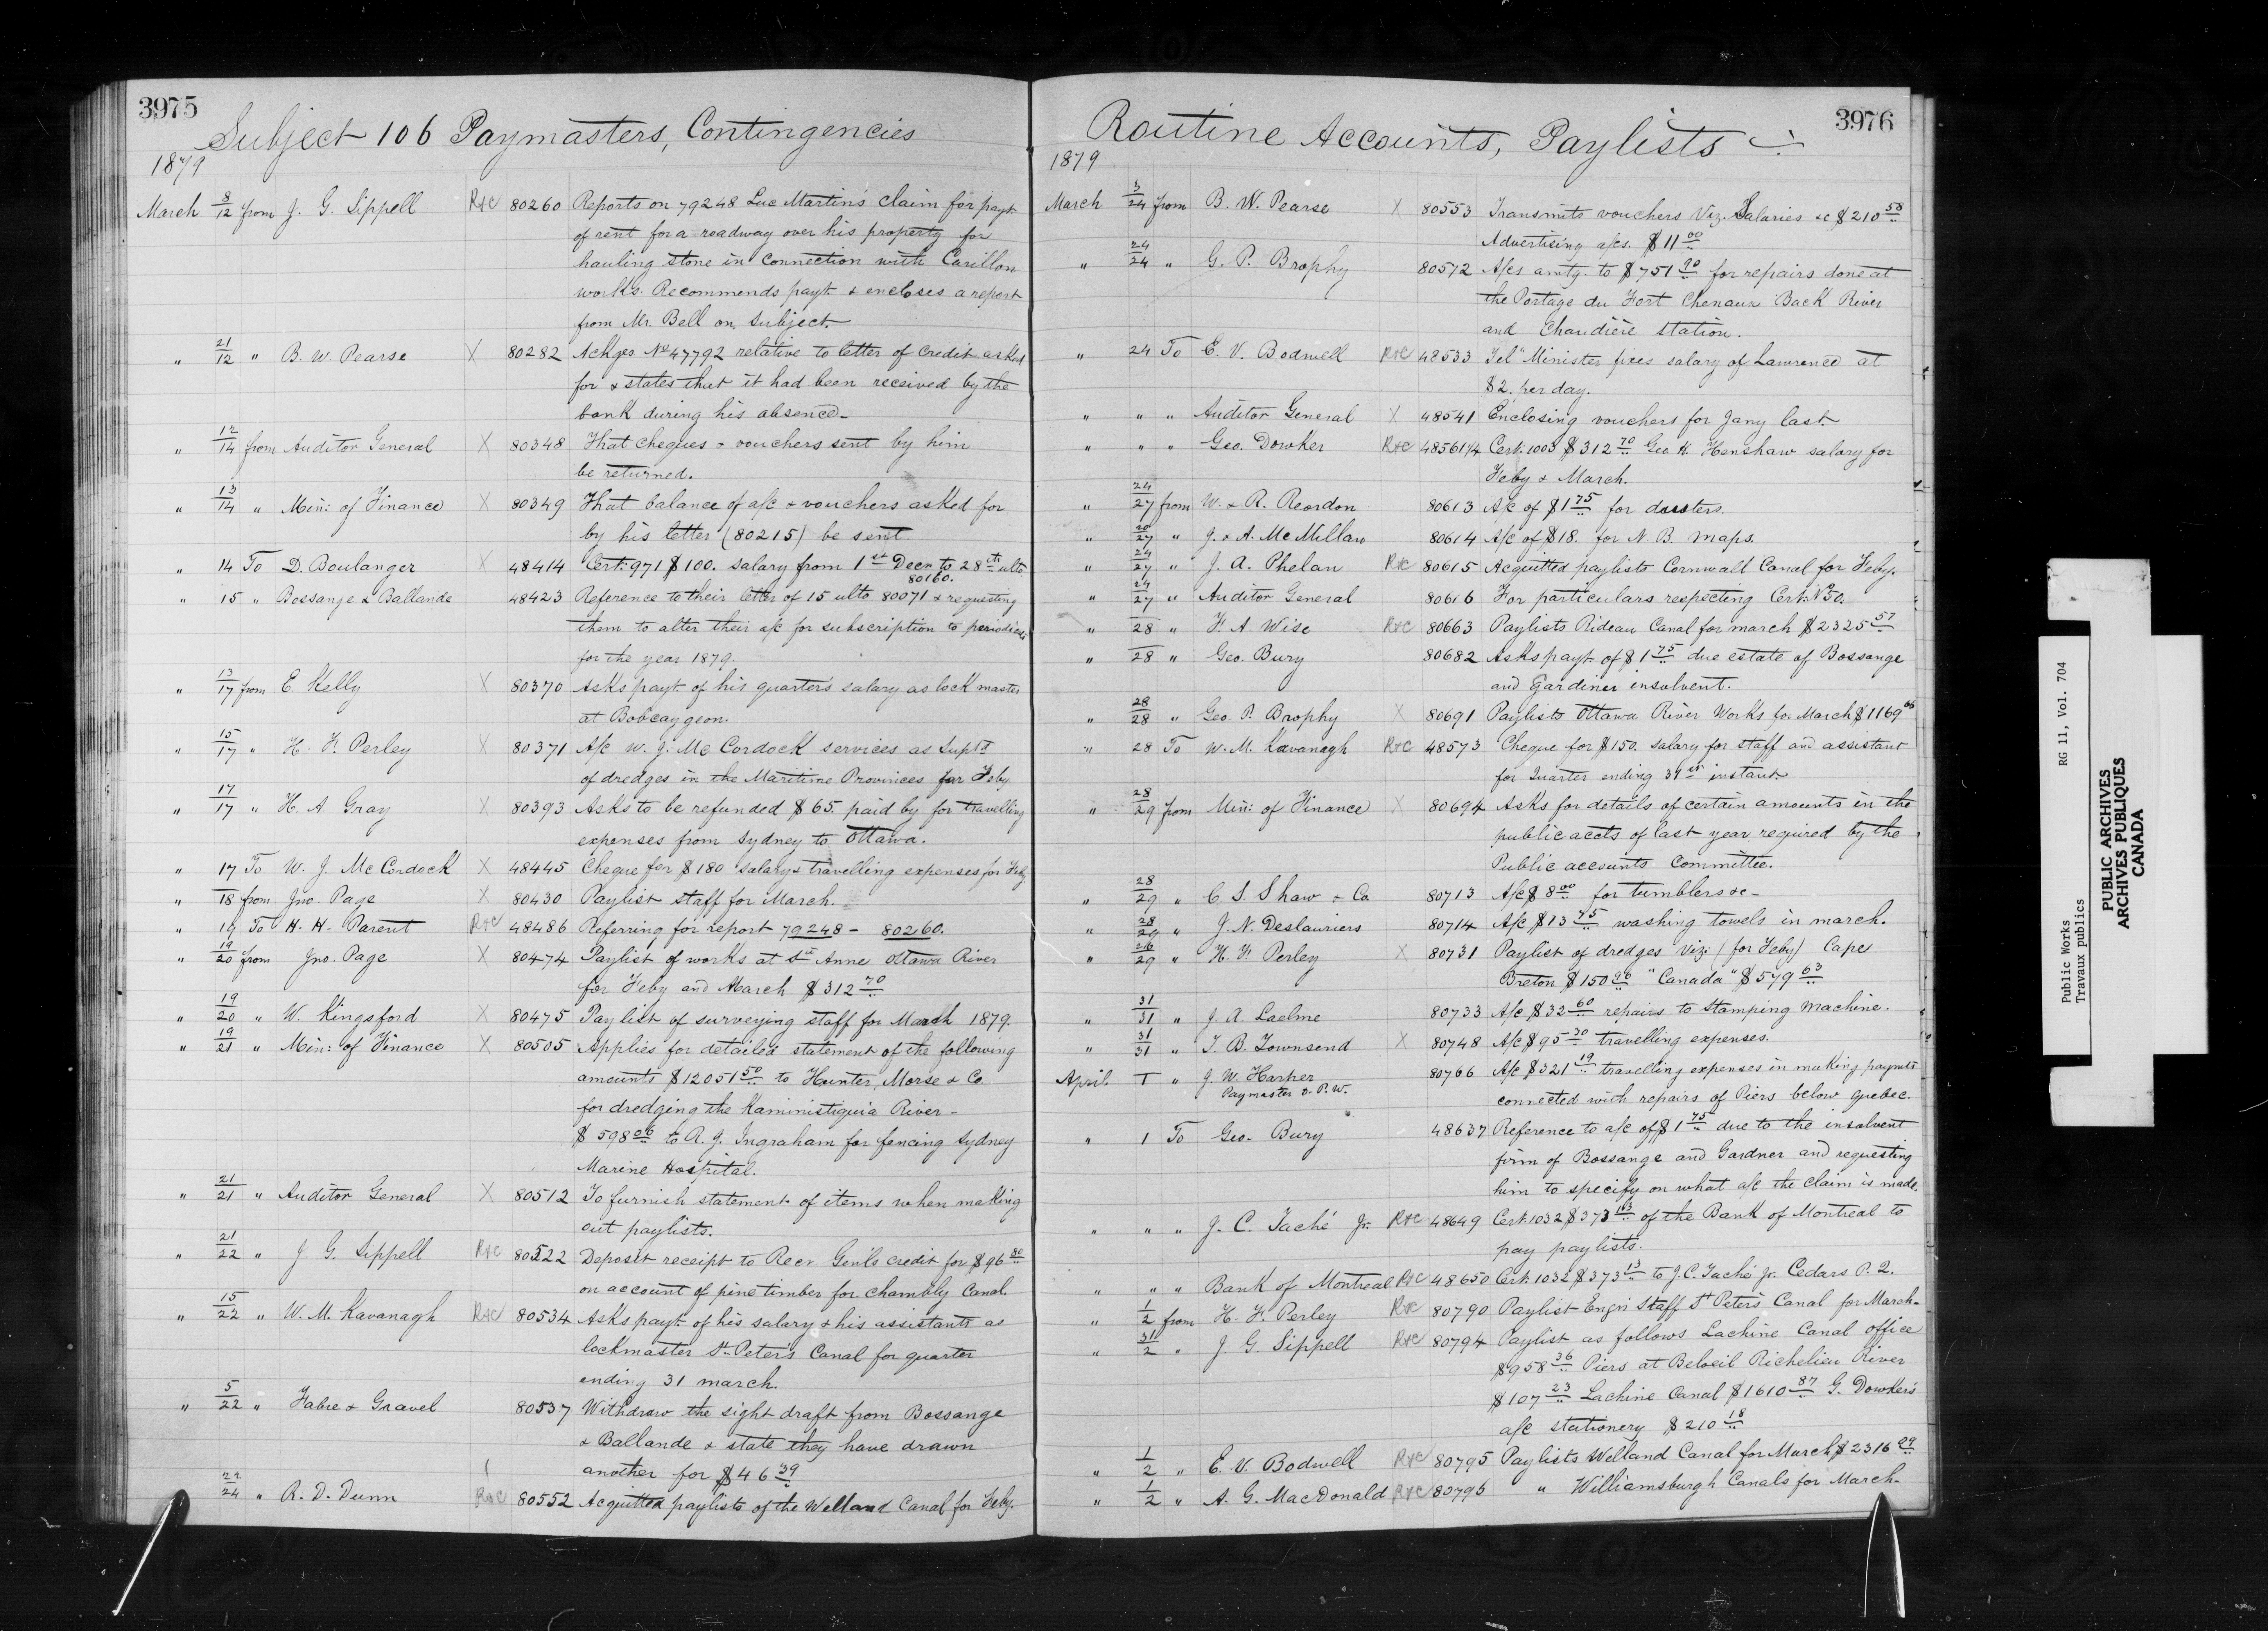 3975
Subject 106 Paymasters, Contingencies
1879
March 8/12 from J. G. Sippell R&C 80260 Reports on 79248 Luc Martin's claim for payt
of rent for a roadway over his property for
hauling stone in connection with Carillon
works. Recommends payt & encloses a report
from Mr. Bell on subject.
" 21/12 " B. W. Pearse X 80282 Ackges No 47792 relative to letter of credit asked
for & states that it had been received by the
bank during his absence-
" 12/14 from Auditor General X 80348 That cheques & vouchers sent by him
be returned.
" 13/14 " Min: of Finance X 80349 That balance of a/c & vouchers asked for
by his letter (80215) be sent.
" 14 To D. Boulanger X 48414 Cert: 971 $100. salary from 1st Decr to 28th ulto
80160.
" 15 " Bossange & Ballande 48423 Reference to their letter of 15 ulto 80071 & requesting
them to alter their a/c for subscription to periodicals
for the year 1879.
" 13/17 from E. Kelly X 80370 Asks payt of his quarter's salary as lock master
at Bobcaygeon.
" 15/17 " H. F. Perley X 80371 A/c W. J. McCordock services as Supt
of dredges in the Maritime Provinces for Feby
" 17/17 " H. A. Gray X 80393 Asks to be refunded $65. paid by for travelling
expenses from Sydney to Ottawa.
" 17 To W. J. McCordock X 48445 Cheque for $180 salary & travelling expenses for Feby
" 18 from Jno. Page X 80430 Paylist staff for March.
" 19 To H. H. Parent R&C 48486 Referring for report 79248 - 80260.
" 19/20 from Jno. Page X 80474 Paylist of works at Ste Anne Ottawa River
for Feby and March $312 70
" 19/20 " W. Kingsford X 80475 Paylist of surveying staff for March 1879.
" 19/21 " Min: of Finance X 80505 Applies for detailed statement of the following
amounts $12051 50 to Hunter, Morse & Co
for dredging the Kaministiquia River -
$598 06 to R. J. Ingraham for fencing Sydney
Marine Hospital.
" 21/21 " Auditor General X 80512 To furnish statement of items when making
out paylists.
" 21/22 " J. G. Sippell R&C 80522 Deposit receipt to Recr Genl's credit for $96 80
on account of pine timber for Chambly Canal.
" 15/22 " W. M. Kavanagh R&C 80534 Asks payt of his salary & his assistants as
lockmaster St. Peter's Canal for quarter
ending 31 march.
" 5/22 " Fabre & Gravel 80537 Withdraw the sight draft from Bossange
& Ballande & state they have drawn
another for $46 39
" 22/24 " R. D. Dunn R&C 80552 Acquitted paylists of the Welland Canal for Feby.
3976
Routine Accounts, Paylists
1879
March 3/24 from B. W. Pearse X 80553 Transmits vouchers Viz. Salaries &c $210 58
Advertising a/cs. $11 00
" 24/24 " G. P. Brophy 80572 A/cs amtg. to $751 90 for repairs done at
the Portage du Fort Chenaux Back River
and Chaudière station.
" 24 To E. V. Bodwell R&C 48533 Tel " Minister fixes salary of Lawrence at
$2. per day.
" " " Auditor General X 48541 Enclosing vouchers for Jany last.
" " " Geo. Dowker R&C 48561 1/4 Cert: 1003 $312 70 Geo H. Henshaw salary for
Feby & March.
" 24/27 from W. & R. Reordon 80613 A/c of $1 75 for dusters.
" 20/27 " J. & A. McMillan 80614 A/c of $18. for N. B. maps.
" 24/27 " J. A. Phelan R&C 80615 Acquitted paylists Cornwall Canal for Feby.
" 24/27 " Auditor General 80616 For particulars respecting Cert: No 50.
" 28 " F. A. Wise R&C 80663 Paylists Rideau Canal for march $2325 57
" 28 " Geo. Bury 80682 Asks payt of $1 75 due estate of Bossange
and Gardiner insolvent.
" 28/28 " Geo. P. Brophy X 80691 Paylists Ottawa River Works for March $1169 06
" 28 To W. M. Kavanagh R&C 48573 Cheque for $150. salary for staff and assistant
for Quarter ending 31st instant
" 28/29 from Min: of Finance X 80694 Asks for details of certain amounts in the
public accts of last year required by the
Public accounts Committee.
" 28/29 " C S. Shaw & Co 80713 A/c $8 00 for tumblers &c-
" 28/29 " J. N. Deslauriers 80714 A/c $13 75 washing towels in march.
" 26/29 " H. F. Perley X 80731 Paylist of dredges Viz: (for Feby) Cape
Breton $150 96 "Canada" $579 63
" 31/31 " J. A. Laelme 80733 A/c $32 60 repairs to Stamping Machine.
" 31/31 " T. B. Townsend X 80748 A/c $95 30 travelling expenses.
April 1 " J. W. Harper 80766 A/c $321 19 travelling expenses in making paymts
Paymaster D. P. W.
connected with repairs of Piers below Quebec.
" 1 To Geo. Bury 48637 Reference to a/c of $1 75 due to the insolvent
firm of Bossange and Gardner and requesting
him to specify on what a/c the claim is made.
" " " J. C. Taché Jr. R&C 48649 Cert: 1032 $373 13 of the Bank of Montreal to
pay paylists.
" " " Bank of Montreal R&C 48650 Cert: 1032 $373 13 to J. C. Taché Jr. Cedars P. Q.
" 1/2 from H. F. Perley R&C 80790 Paylist Engrs Staff St Peter's Canal for March-
" 31/2 " J. G. Sippell R&C 80794 Paylist as follows Lachine Canal office
$958 36 Piers at Beloeil Richelieu River
$107 23 Lachine Canal $1610 87 G. Dowker's
a/c stationery $210 18
" 1/2 " E. V. Bodwell R&C 80795 Paylists Welland Canal for March $2316 29
" 1/2 " A. G. MacDonald R&C 80796 " Williamsburgh Canals for March-
Public Works RG 11, Vol. 704
Travaux publics
PUBLIC ARCHIVES
ARCHIVES PUBLIQUES
CANADA